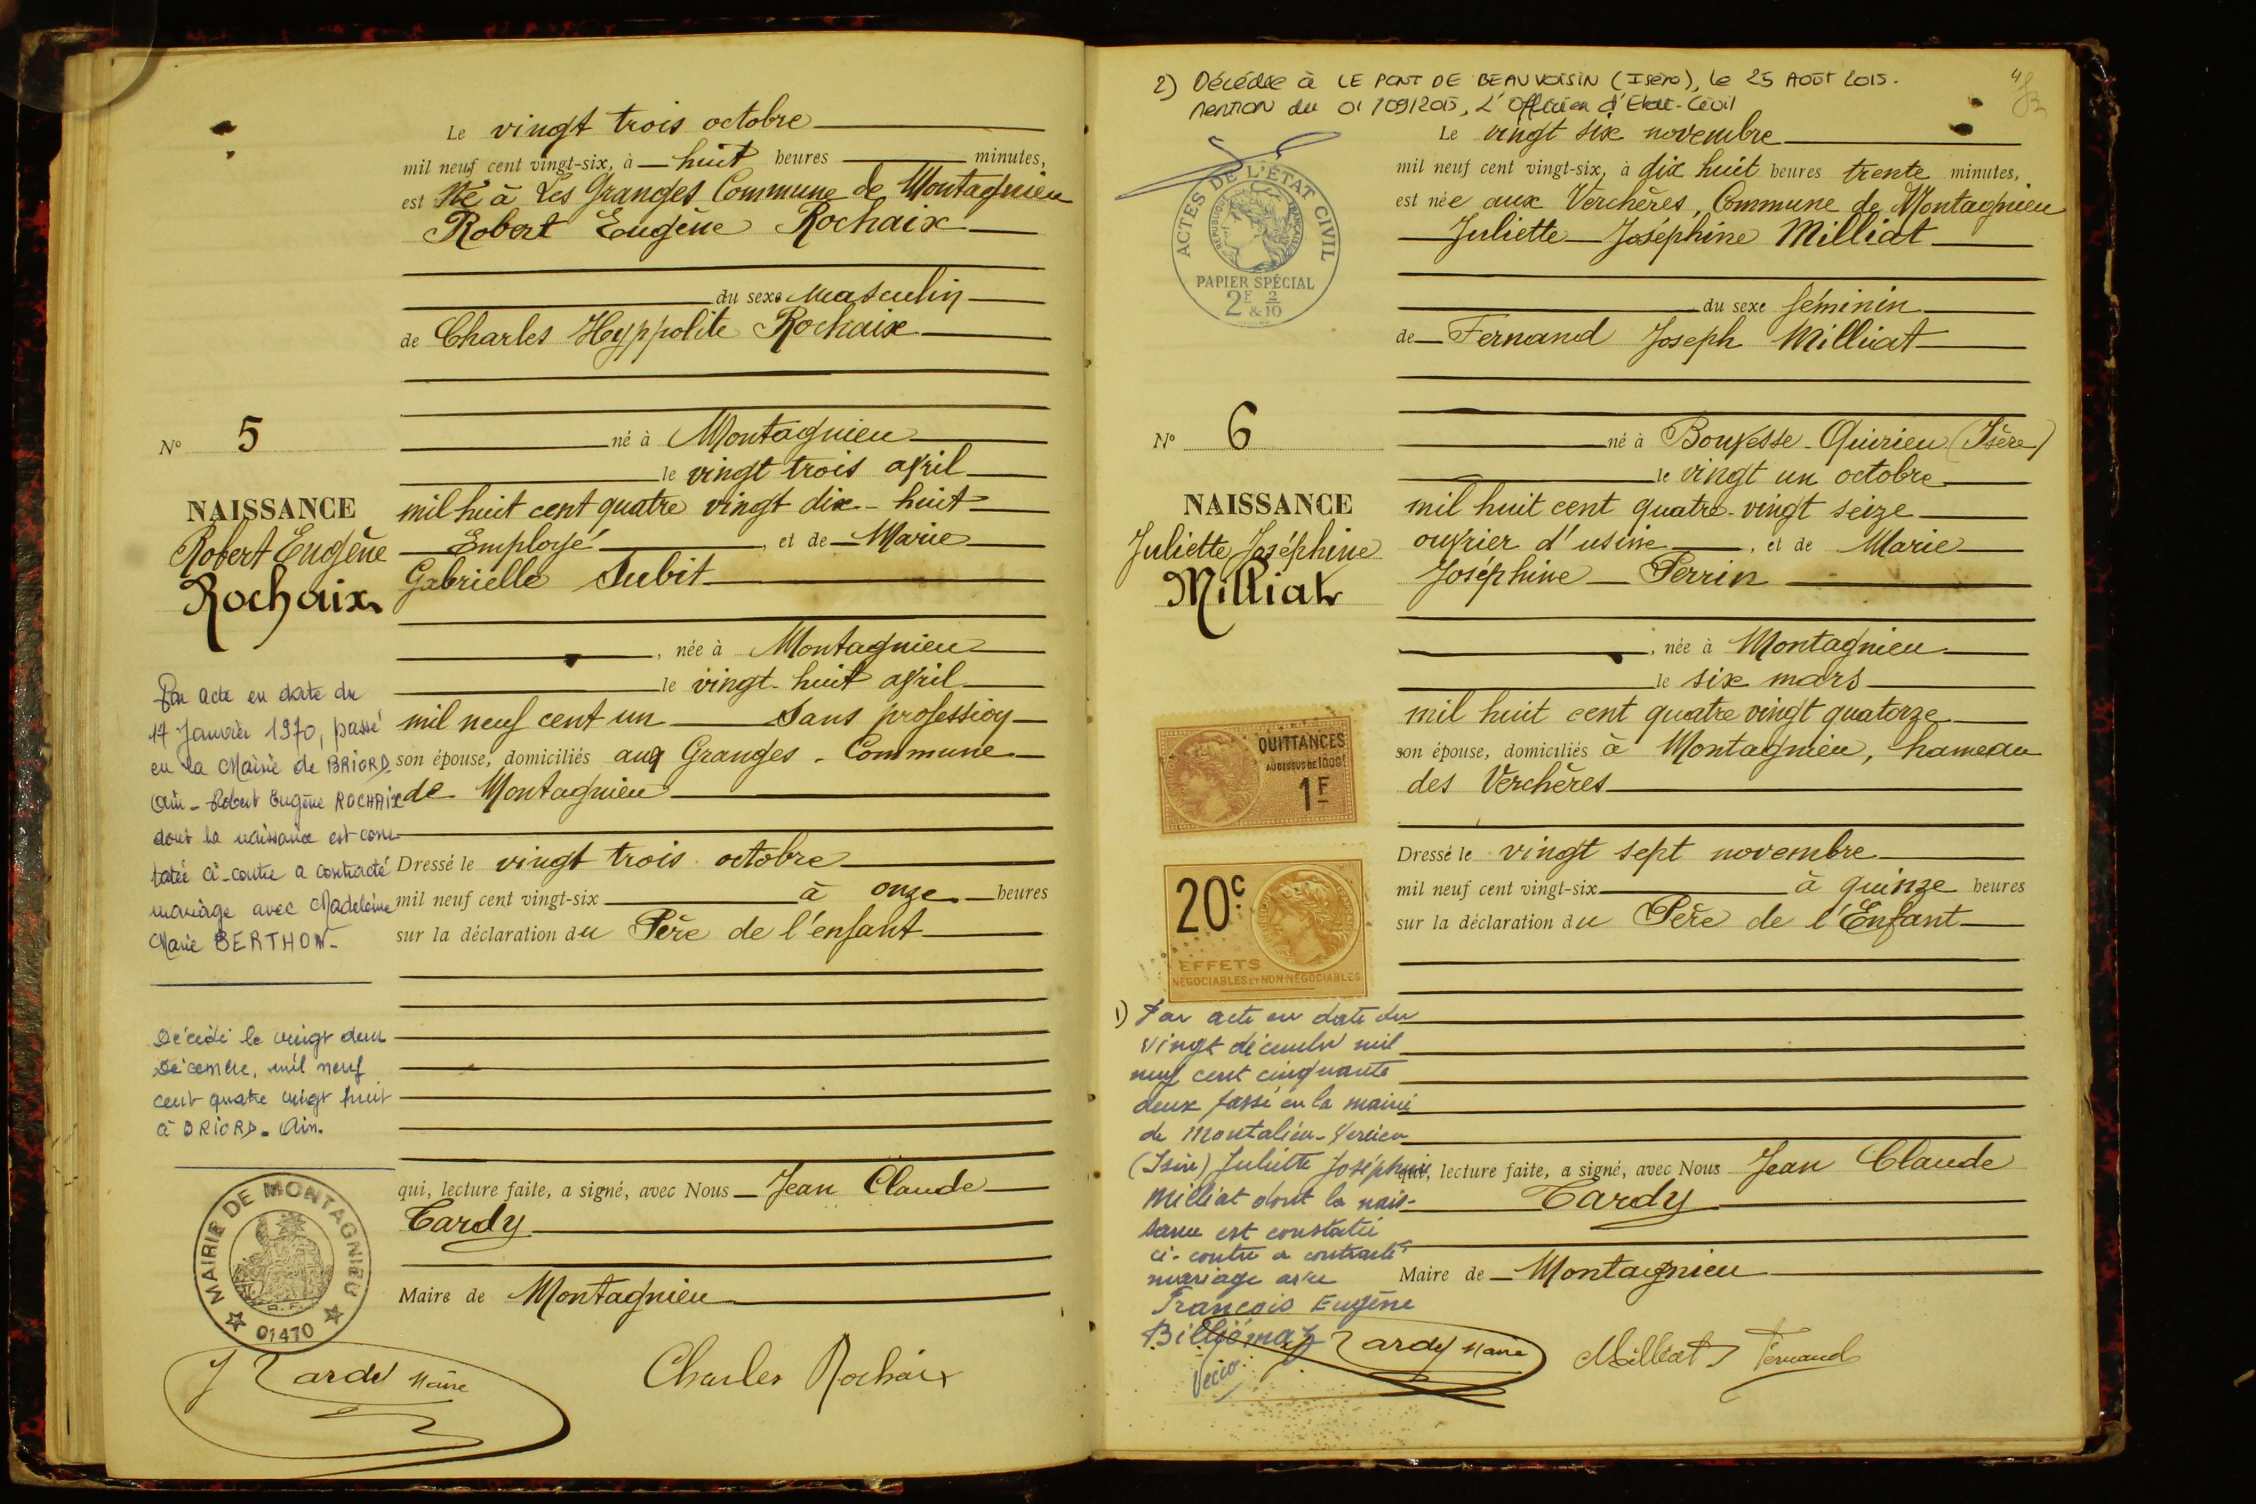 Le vingt trois octobre
mil neuf cent vingt-six, à huit heures minutes,
est né à Les Granges Commune de Montagnieu
Robert Eugène Rochaix
du sexe masculin
de Charles Hyppolite Rochaix
né à Montagnieu
le vingt trois avril
mil huit cent quatre vingt dix-huit
Employé, et de Marie
Gabrielle Subit
, née à Montagnieu
le vingt-huit avril
mil neuf cent un Sans profession
son épouse, domiciliés aux Granges - Commune
de Montagnieu
Dressé le vingt trois octobre
mil neuf cent vingt-six à onze heures
sur la déclaration du Père de l'enfant
qui, lecture faite, a signé, avec Nous Jean Claude
Tardy
Maire de Montagnieu
J Tardy Maire
Charles Rochaix
N° 5
NAISSANCE
Robert Eugène
Rochaix
Par acte en date du
17 Janvier 1970, passé
en la Mairie de BRIORD
Ain - Robert Eugène ROCHAIX
dont la naissance est cons
tatée ci-contre a contracté
mariage avec Madeleine
Marie BERTHON-
Décédé le vingt deux
Décembre, mil neuf
cent quatre vingt huit
à BRIORD. Ain.
MAIRIE DE MONTAGNIEU
R.F.
01470
2) Décédée à LE PONT DE BEAUVOISIN (Isère), le 25 AOÛT 2015.
MENTION du 01/09/2015, L'Officier d'Etat-Civil
Le vingt six novembre
mil neuf cent vingt-six, à dix huit heures trente minutes,
est née aux Verchères, Commune de Montagnieu
Juliette Joséphine Milliat
du sexe féminin
de Fernand Joseph Milliat
né à Bouvesse-Quirieu (Isère)
le vingt un octobre
mil huit cent quatre-vingt seize
ouvrier d'usine, et de Marie
Joséphine Perrin
, née à Montagnieu
le six mars
mil huit cent quatre vingt quatorze
son épouse, domiciliés à Montagnieu, hameau
des Verchères
Dressé le vingt sept novembre
mil neuf cent vingt-six à quinze heures
sur la déclaration du Père de l'Enfant
qui, lecture faite, a signé, avec Nous Jean Claude
Tardy
Maire de Montagnieu
Tardy Maire
Milliat Fernand
ACTES DE L'ÉTAT CIVIL
RÉPUBLIQUE FRANÇAISE
PAPIER SPÉCIAL
2F & 2/10
N° 6
NAISSANCE
Juliette Joséphine
Milliat
QUITTANCES
AU DESSUS DE 1000F
1F
20c
EFFETS
NÉGOCIABLES ET NON NÉGOCIABLES
1) Par acte en date du
vingt décembre mil
neuf cent cinquante
deux passé en la mairie
de Montalieu-Vercieu
(Isère) Juliette Joséphine
Milliat dont la nais-
sance est constatée
ci-contre a contracté
mariage avec
François Eugène
Billiémaz